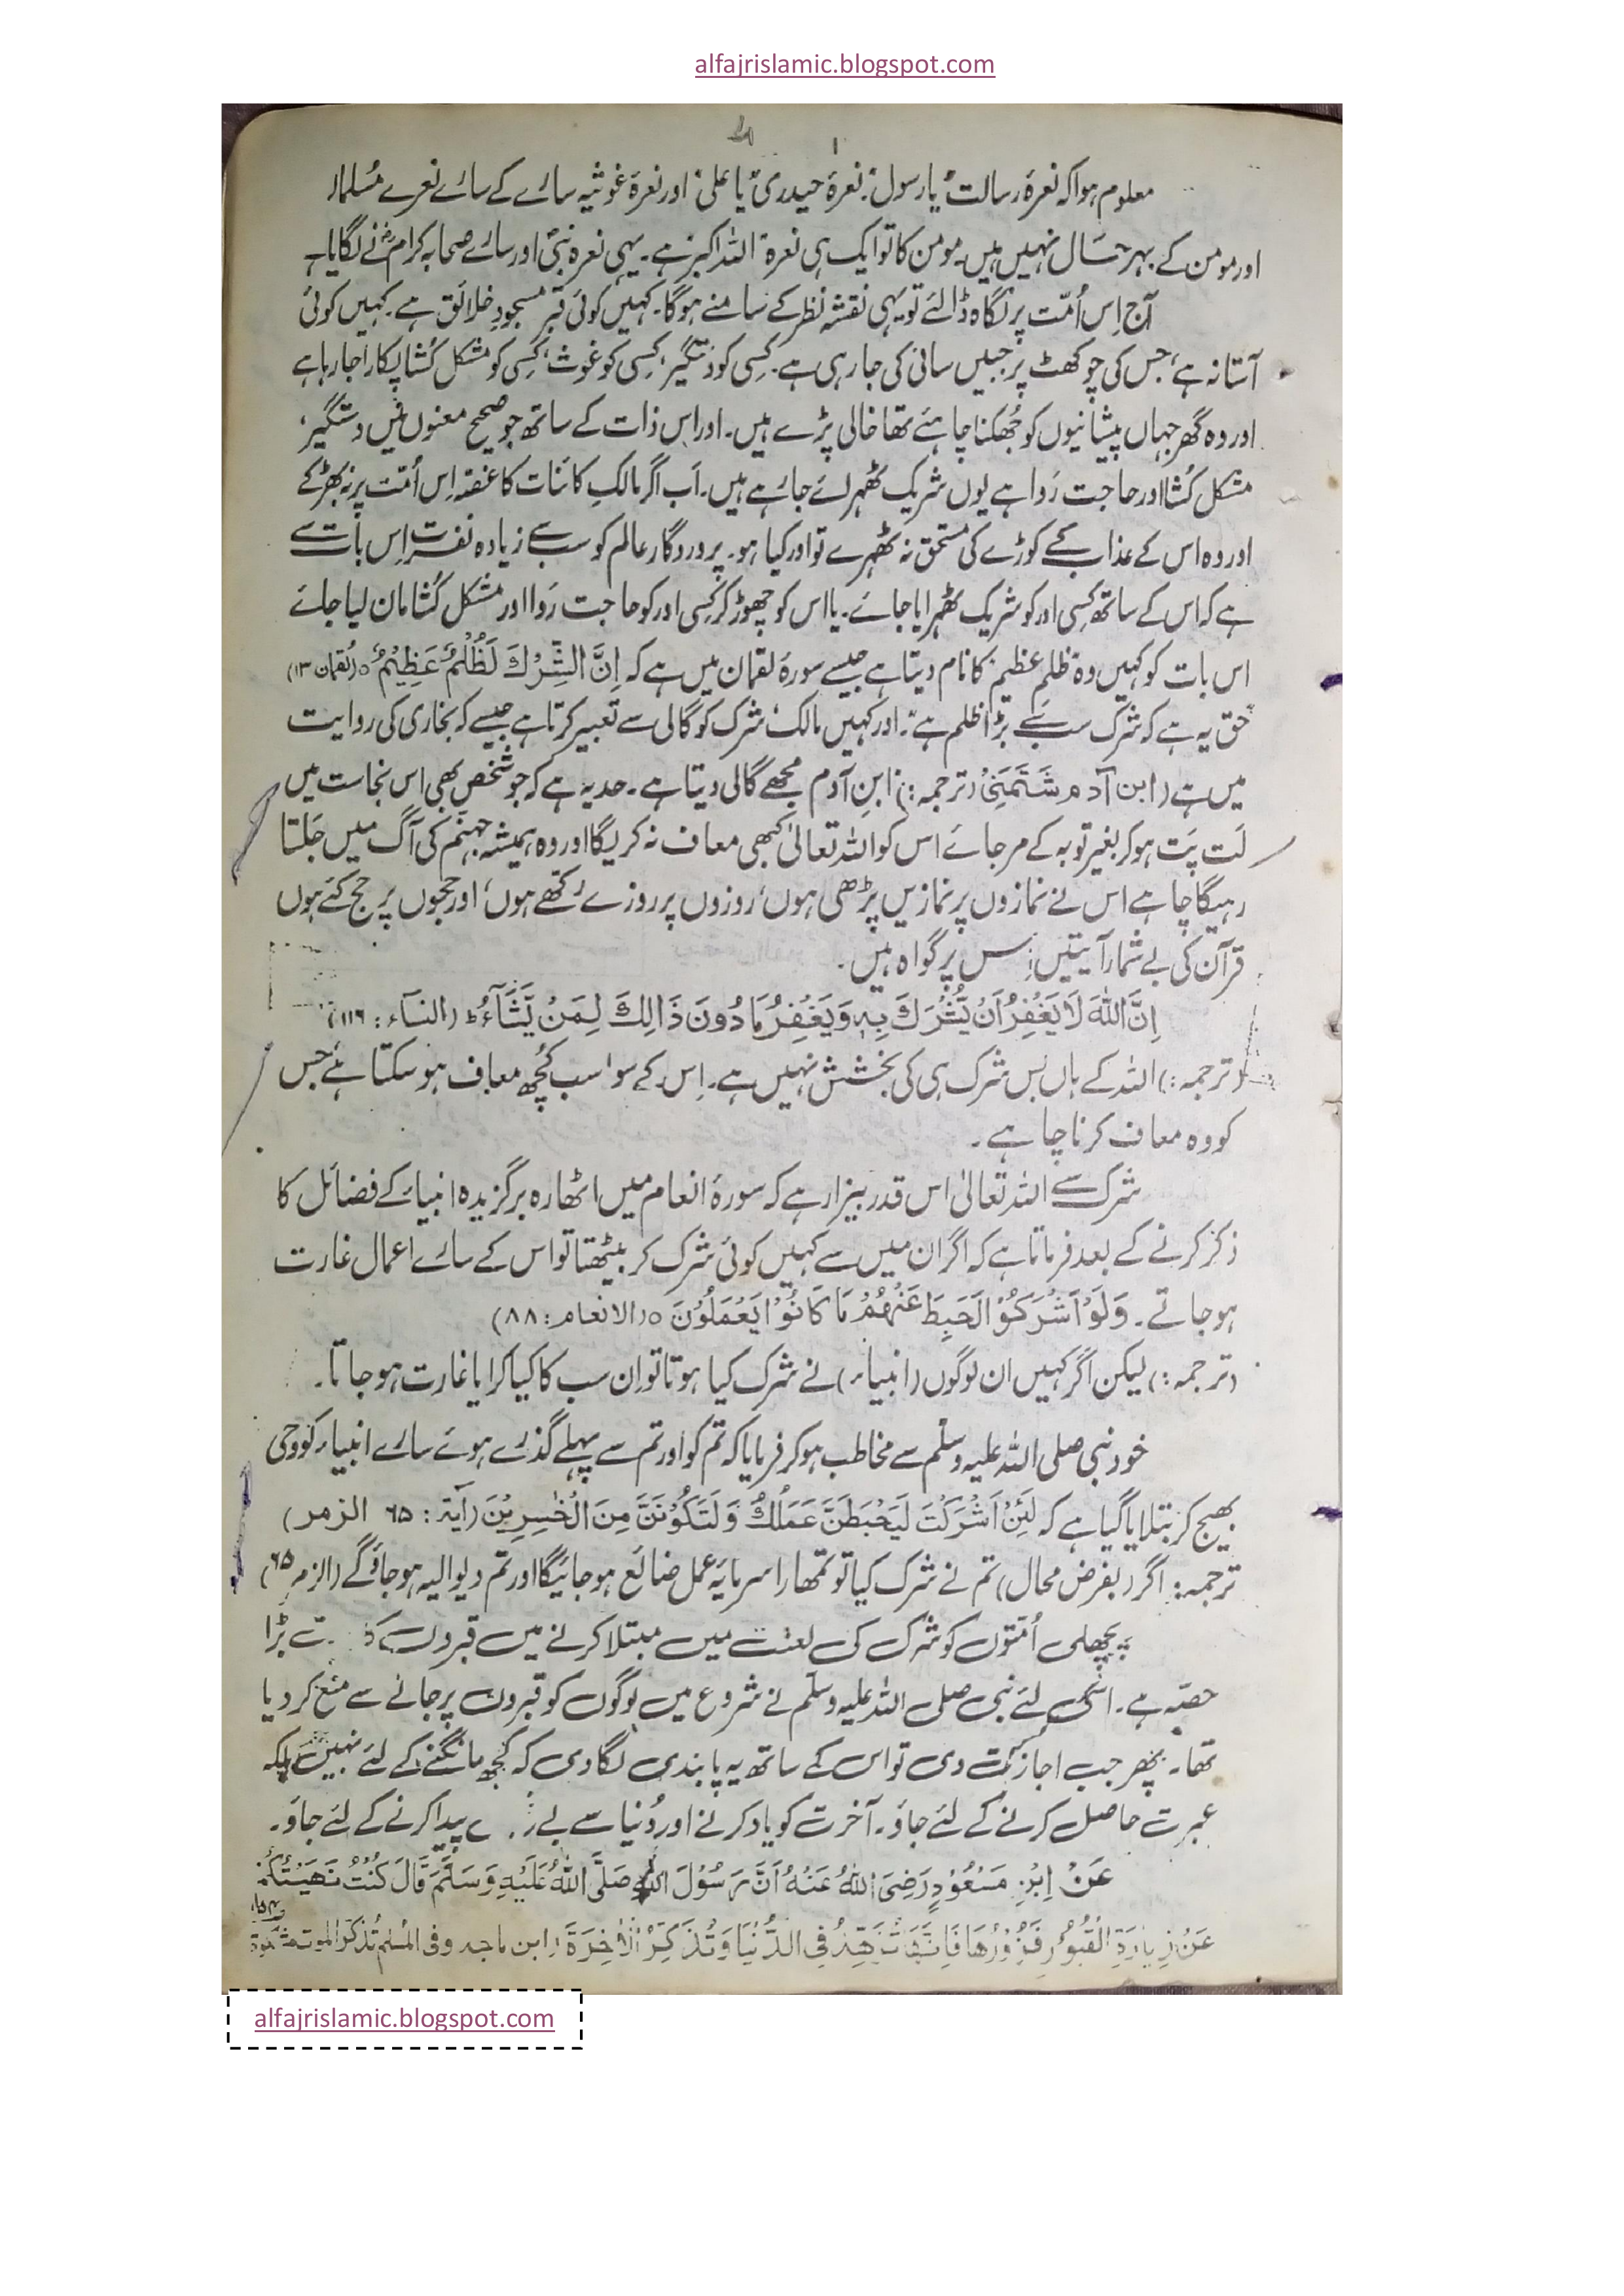 alfajrislamic.blogspot.com
معلوم ہوا کہ نعرۂ رسالت "یا رسول"، نعرۂ حیدری "یا علی" اور نعرۂ غوثیہ سارے کے سارے نعرے مسلما
اور مومن کے بہر حال نہیں ہیں۔ مومن کا تو ایک ہی نعرہ "اللہ اکبر" ہے۔ یہی نعرہ نبیؐ اور سارے صحابہ کرامؓ نے لگایا ہے
آج اِس اُمّت پر نگاہ ڈالئے تو یہی نقشہ نظر کے سامنے ہوگا۔ کہیں کوئی قبر مسجودِ خلائق ہے۔ کہیں کوئی
آستانہ ہے، جس کی چوکھٹ پر جبیں سائی کی جا رہی ہے۔ کسِی کو دستگیر، کسِی کو غوث، کسِی کو مشکل کشا پکارا جا رہا ہے
اور وہ گھر جہاں پیشانیوں کو جُھکنا چاہئے تھا خالی پڑے ہیں۔ اور اس ذات کے ساتھ جو صحیح معنوں میں دستگیر،
مشکل کُشا اور حاجت رَوا ہے یوں شریک ٹھہرائے جا رہے ہیں۔ اَب اگر مالکِ کائنات کا غصّہ اِس اُمّت پر نہ بھڑکے
اور وہ اس کے عذاب کے کوڑے کی مستحق نہ ٹھہرے تو اور کیا ہو۔ پروردگارِ عالم کو سب سے زیادہ نفرت اِس بات سے
ہے کہ اس کے ساتھ کسِی اور کو شریک ٹھہرایا جائے۔ یا اس کو چھوڑ کر کسِی اور کو حاجت رَوا اور مشکل کُشا مان لیا جائے
اس بات کو کہیں وہ "ظلمِ عظیم" کا نام دیتا ہے جیسے سورۂ لقمان میں ہے کہ اِنَّ الشِّرْكَ لَظُلْمٌ عَظِيْمٌ ٥ (لقمان ۱۳)
"حق یہ ہے کہ شرک سب سے بڑا ظلم ہے"۔ اور کہیں مالک شرک کو گالی سے تعبیر کرتا ہے جیسے کہ بخاری کی روایت
میں ہے (ابن آدم شَتَمَنِیْ (ترجمہ:) ابنِ آدم مجھے گالی دیتا ہے۔ حد یہ ہے کہ جو شخص بھی اس نجاست میں
لَت پَت ہو کر بغیر توبہ کے مر جائے اس کو اللہ تعالیٰ کبھی معاف نہ کریگا اور وہ ہمیشہ جہنّم کی آگ میں جَلتا
رہیگا چاہے اس نے نمازوں پر نمازیں پڑھی ہوں، روزوں پر روزے رکّھے ہوں، اور حجوں پر حج کئے ہوں
قرآن کی بے شمار آیتیں اِس پر گواہ ہیں۔
اِنَّ اللّٰهَ لَا يَغْفِرُ اَنْ يُّشْرَكَ بِهٖ وَيَغْفِرُ مَا دُونَ ذَالِكَ لِمَنْ يَّشَآءُ ط (النسآء: ۱۱۶)
(ترجمہ:) اللہ کے ہاں بس شرک ہی کی بخشش نہیں ہے۔ اِس کے سوا سب کُچھ معاف ہو سکتا ہے، جس
کو وہ معاف کرنا چاہے۔
شرک سے اللہ تعالیٰ اس قدر بیزار ہے کہ سورۂ انعام میں اٹھارہ برگزیدہ انبیاء کے فضائل کا
ذکر کرنے کے بعد فرماتا ہے کہ اگر ان میں سے کہیں کوئی شرک کر بیٹھتا تو اس کے سارے اعمال غارت
ہو جاتے۔ وَلَوْ اَشْرَكُوْا لَحَبِطَ عَنْهُمْ مَا كَانُوْا يَعْمَلُوْنَ ٥ (الانعام: ۸۸)
(ترجمہ:) لیکن اگر کہیں ان لوگوں (انبیاء) نے شرک کیا ہوتا تو اِن سب کا کیا کرایا غارت ہو جاتا۔
خود نبی صلی اللہ علیہ وسلّم سے مخاطب ہو کر فرمایا کہ تم کو اور تم سے پہلے گذرے ہوئے سارے انبیاء کو وحی
بھیج کر بتلایا گیا ہے کہ لَئِنْ اَشْرَكْتَ لَيَحْبَطَنَّ عَمَلُكَ وَلَتَكُوْنَنَّ مِنَ الْخٰسِرِيْنَ (آیۃ: ۶۵ الزمر)
ترجمہ: اگر (بفرض محال) تم نے شرک کیا تو تمھارا سرمایۂ عمل ضائع ہو جائیگا اور تم دیوالیہ ہو جاؤ گے (الزمر ۶۵)
پچھلی اُمّتوں کو شرک کی لعنت میں مبتلا کرنے میں قبروں بڑا
حصّہ ہے۔ اسی لئے نبی صلی اللہ علیہ وسلّم نے شروع میں لوگوں کو قبروں پر جانے سے منع کر دیا
تھا۔ پھر جب اجازت دی تو اس کے ساتھ یہ پابندی لگا دی کہ کچھ مانگنے کے لئے نہیں بلکہ
عبرت حاصل کرنے کے لئے جاؤ۔ آخرت کو یاد کرنے اور دُنیا سے پیدا کرنے کے لئے جاؤ۔
عَنْ اِبْنِ مَسْعُوْدٍ رَضِیَ اللّٰهُ عَنْهُ اَنَّ رَسُوْلَ اللّٰهِ صَلَّى اللّٰهُ عَلَيْهِ وَسَلَّمَ قَالَ كُنْتُ نَهَيْتُكُمْ
عَنْ زِيَارَةِ الْقُبُوْرِ فَزُوْرُهَا فَاِنَّهَا تُزَهِّدُ فِی الدُّنْيَا وَتُذَكِّرُ الْاٰخِرَةَ (ابن ماجہ وفی المسلم تُذكّر الموت
alfajrislamic.blogspot.com